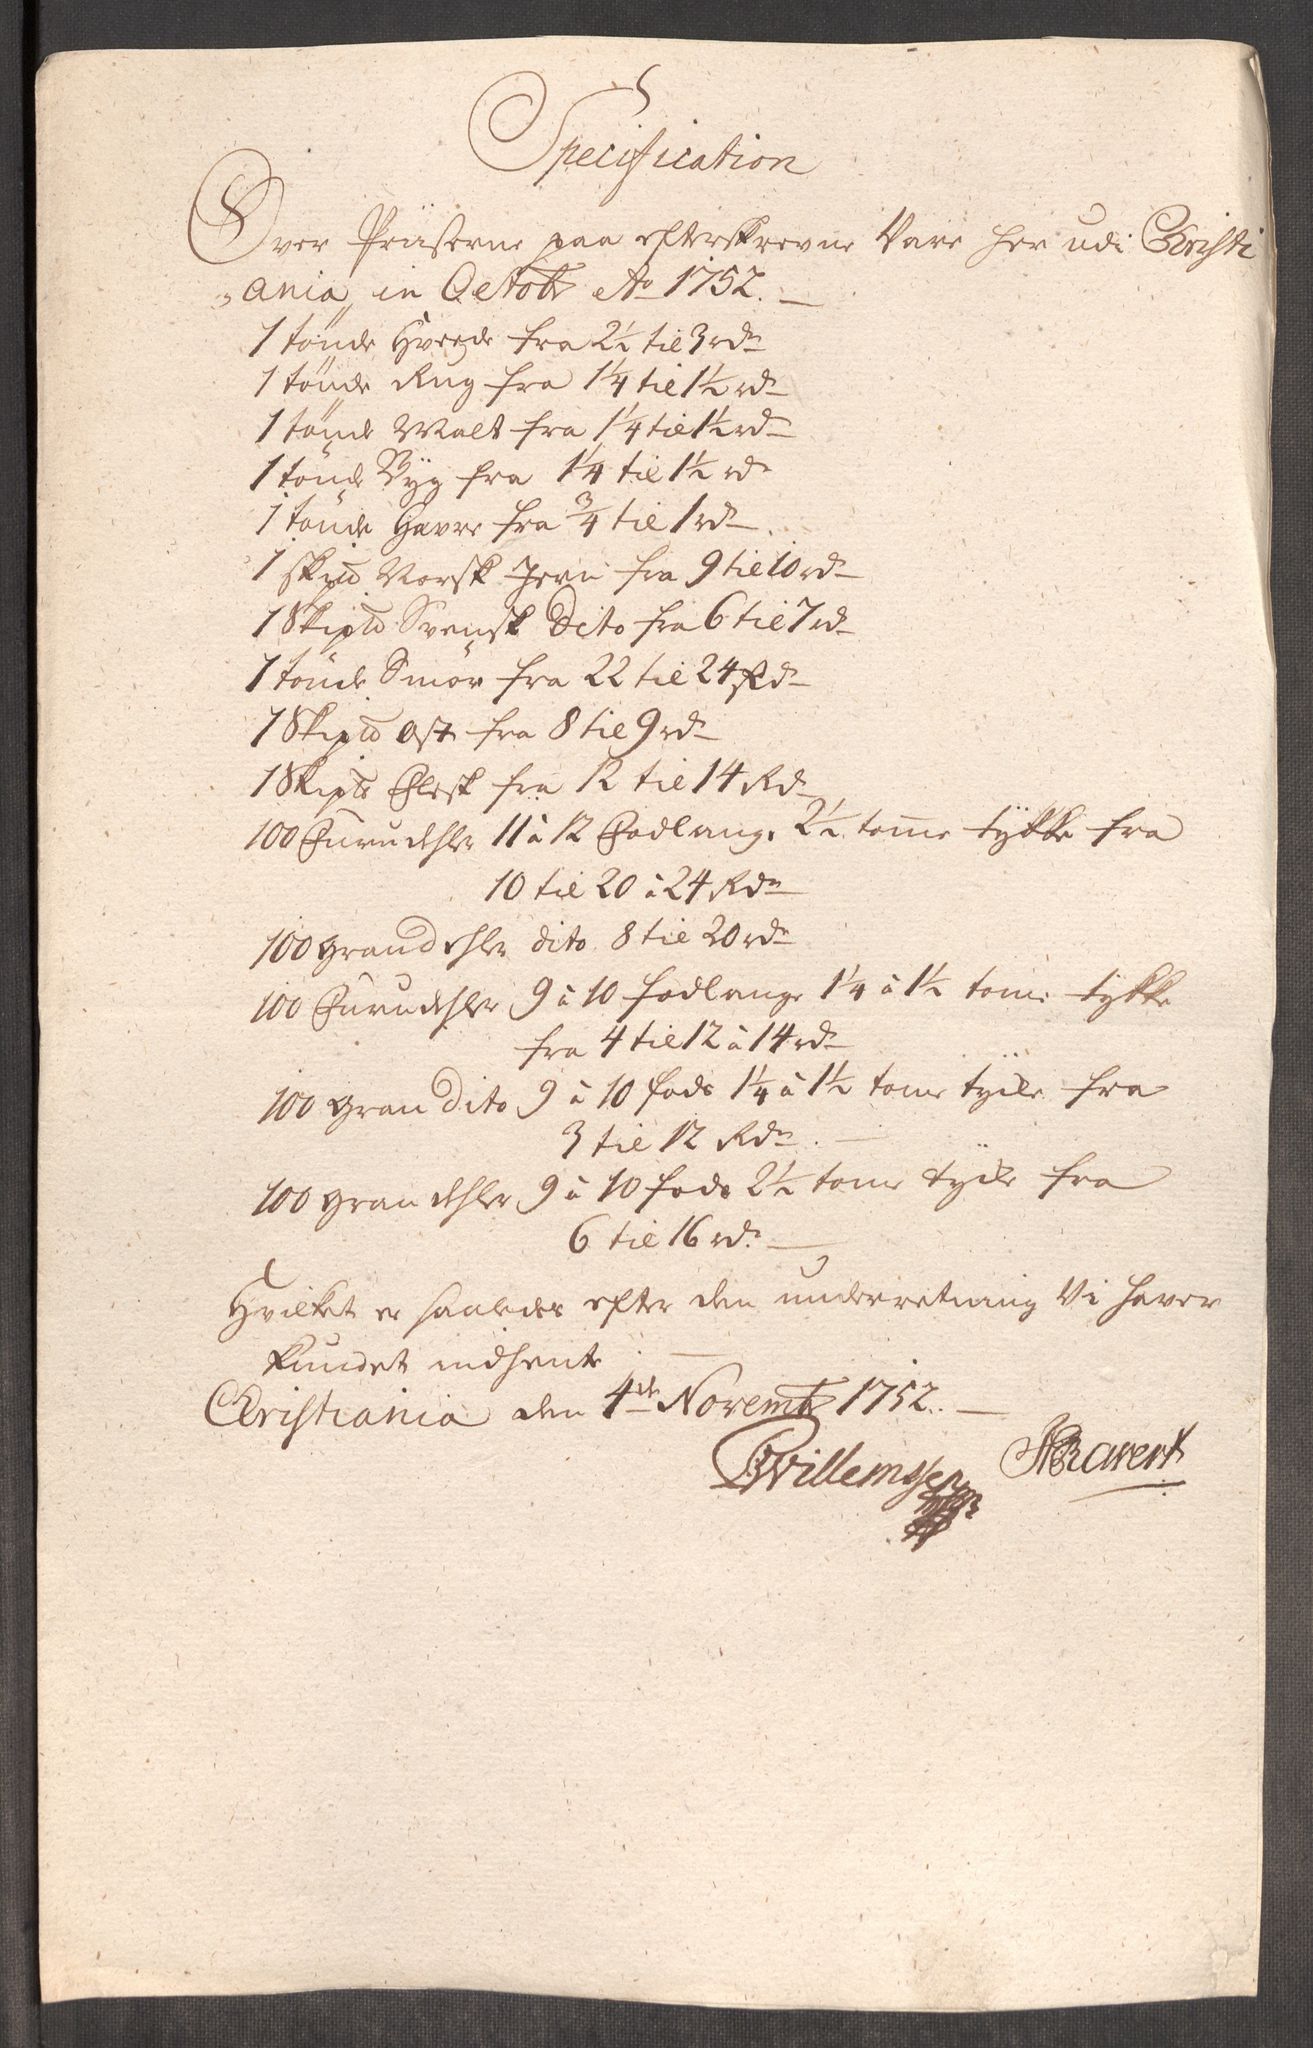 Specification
Over Priiserne paa efterskrevne Vare her udi Christi
"ania in Octobr Ao 1752.
1 tönde Hvede fra 2½ til 3 rdr
1 tönde Rug fra 1¼ til 1½ rdr
1 tönde Malt fra 1¼ til 1½ rdr
1 tönde Byg fra 1¼ til 1½ rdr
1 tönde Havre fra ¾ til 1 rdr
1 skpd Norsk Jern fra 9 til 10 rdr
1 Skipd Svensk Dito fra 6 til 7 rdr
1 tönde Smör fra 22 til 24 Rdr
1 Skipd Ost fra 8 til 9 rdr
1 Skipd Flesk fra 12 til 14 Rdr
100 Furudehler 11 à 12 Fodlange 2½ tome tykke fra
10 til 20 à 24 Rdr
100 grandehler dito 8 til 20 rdr
100 Furudehler 9 à 10 fodlange 1¼ à 1½ tome tykke
fra 4 til 12 à 14 rdr
100 gran Dito 9 à 10 fods 1¼ à 1½ tome tycke fra
3 til 12 Rdr.
100 grandehler 9 à 10 fods 2½ tome tycke fra
6 til 16 rdr.
Hvilket er saaledes efter den underretning Vi haver
kundet indhente
Christiania den 4de Novembr 1752.
Willemsen Ravert